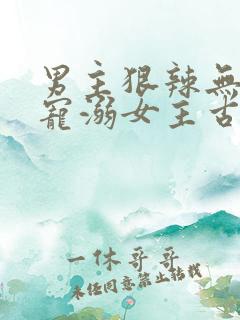 男主狠辣無
寵溺女主古
一休哥哥
未经同意禁止转载